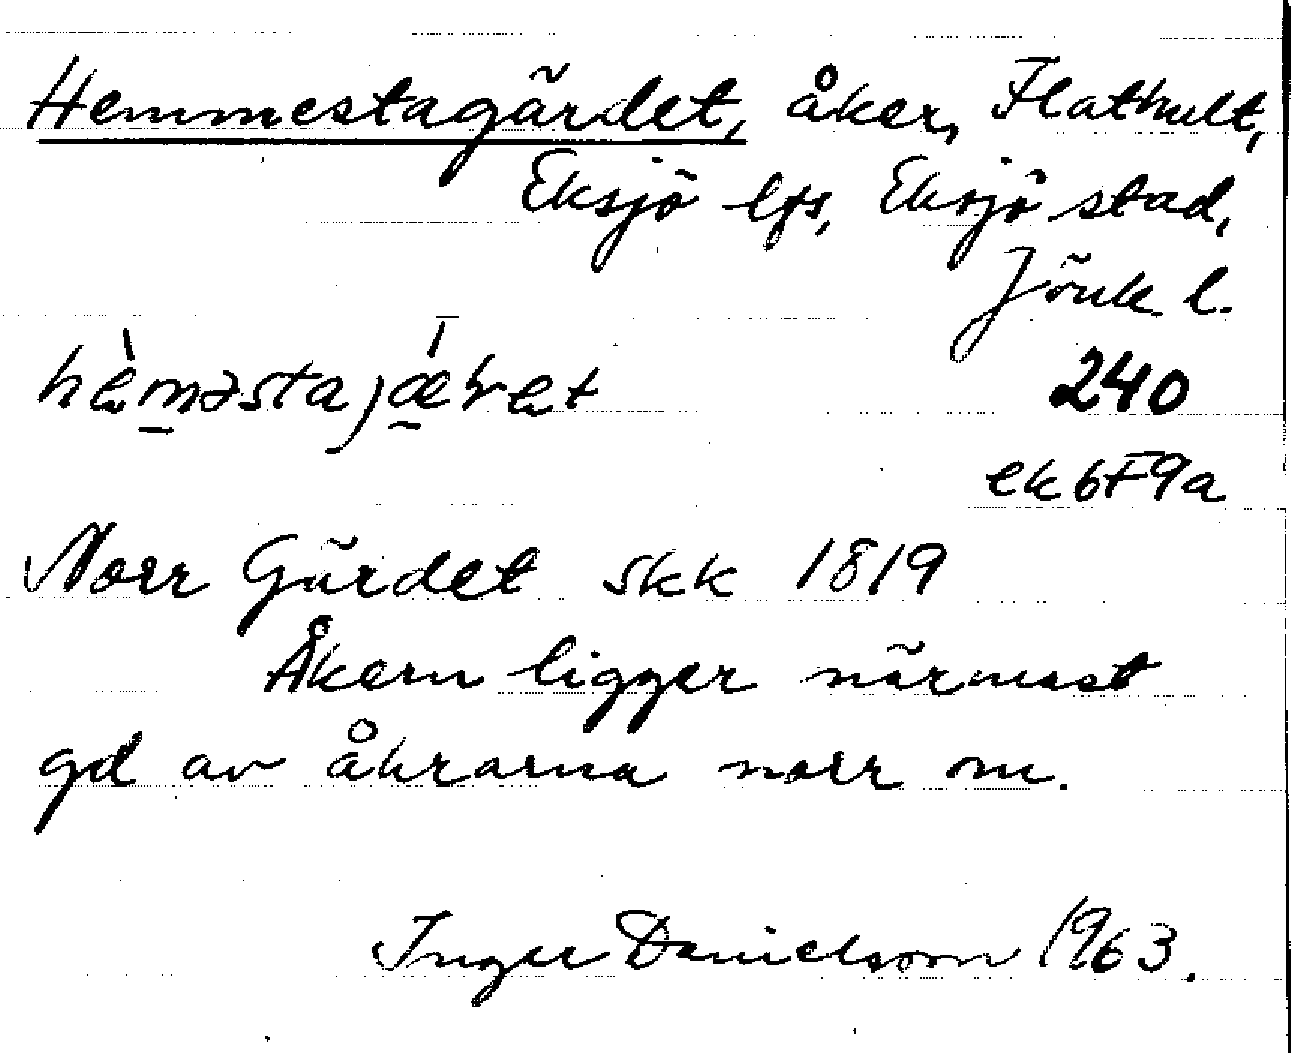 Hemmestagärdet, åker, Flathult,
Eksjö lfs, Eksjö stad,
Jönk. l.
hèməstajǽret 240
ek 6F9a
Norr Gärdet skk 1819
Åkern ligger närmast
gd av åkrarna norr om.
Inger Danielsson 1963.